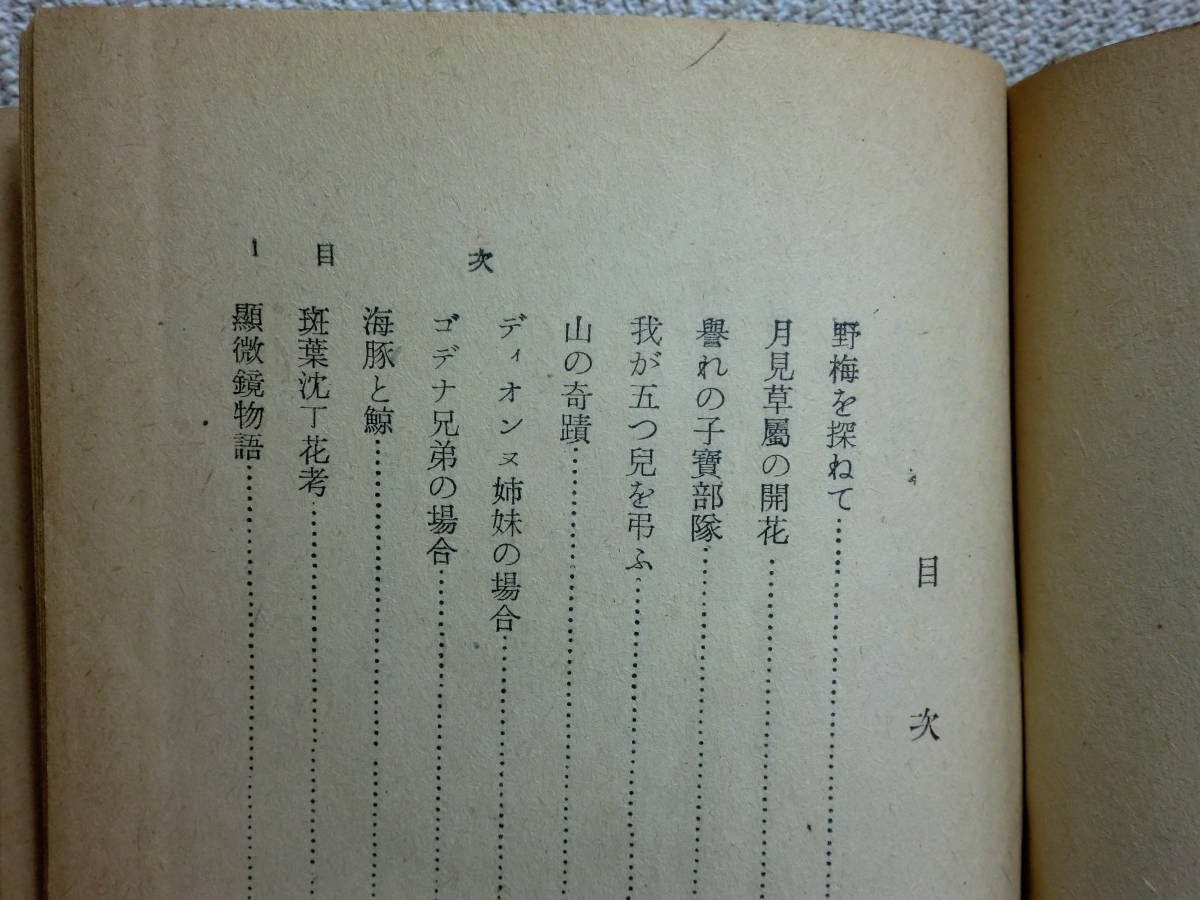 目次
野梅を探ねて
月見草屬の開花
譽れの子寶部隊
我が五つ兒を弔ふ
山の奇蹟
ディオンヌ姉妹の場合
ゴデナ兄弟の場合
海豚と鯨
斑葉沈丁花考
顯微鏡物語
次目1